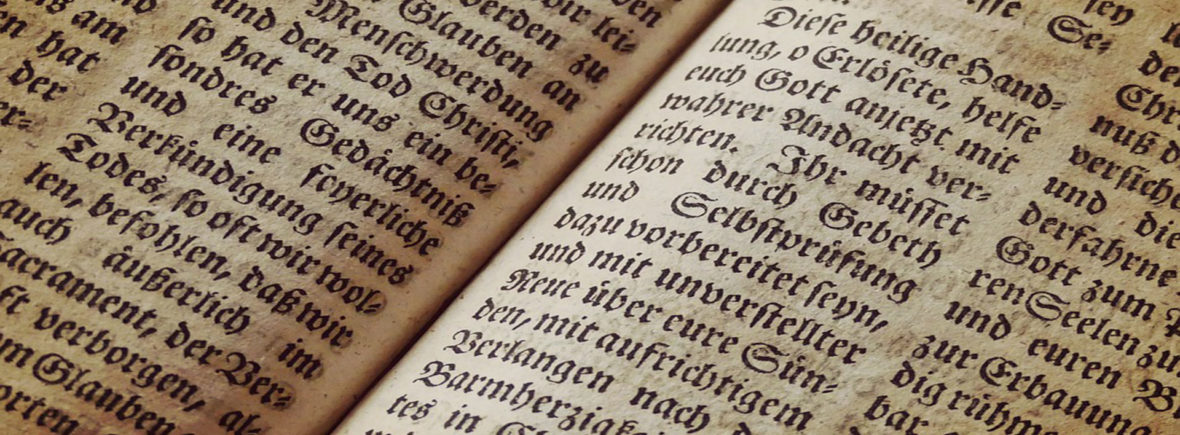 am
hat
der
wir lei⸗
werden zu
Glauben an
Menſchwerdung
und den Tod Chriſti,
ſo hat er uns ein be⸗
ſondres Gedächtniß
und eine feyerliche
Verkündigung ſeines
Todes, ſo oft wir wol⸗
len, befohlen, daß wir
auch äußerlich im
Sacrament, der Ver⸗
verborgen, al⸗
Glauben
Se⸗
Dieſe heilige Hand⸗
lung, o Erlöſete, helfe
euch Gott anjetzt mit
wahrer Andacht ver⸗
richten. Ihr müſſet
ſchon durch Gebeth
und Selbſtprüfung
dazu vorbereitet ſeyn,
und mit unverſtellter
Reue über eure Sün⸗
den, mit aufrichtigem
Verlangen nach
Barmherzigkei
tes in
ſey
nuß
verſiche
und die
derfahrne
Gott zum
ren Seelen zu
und euren
zur Erbauung
dig rühm
bar